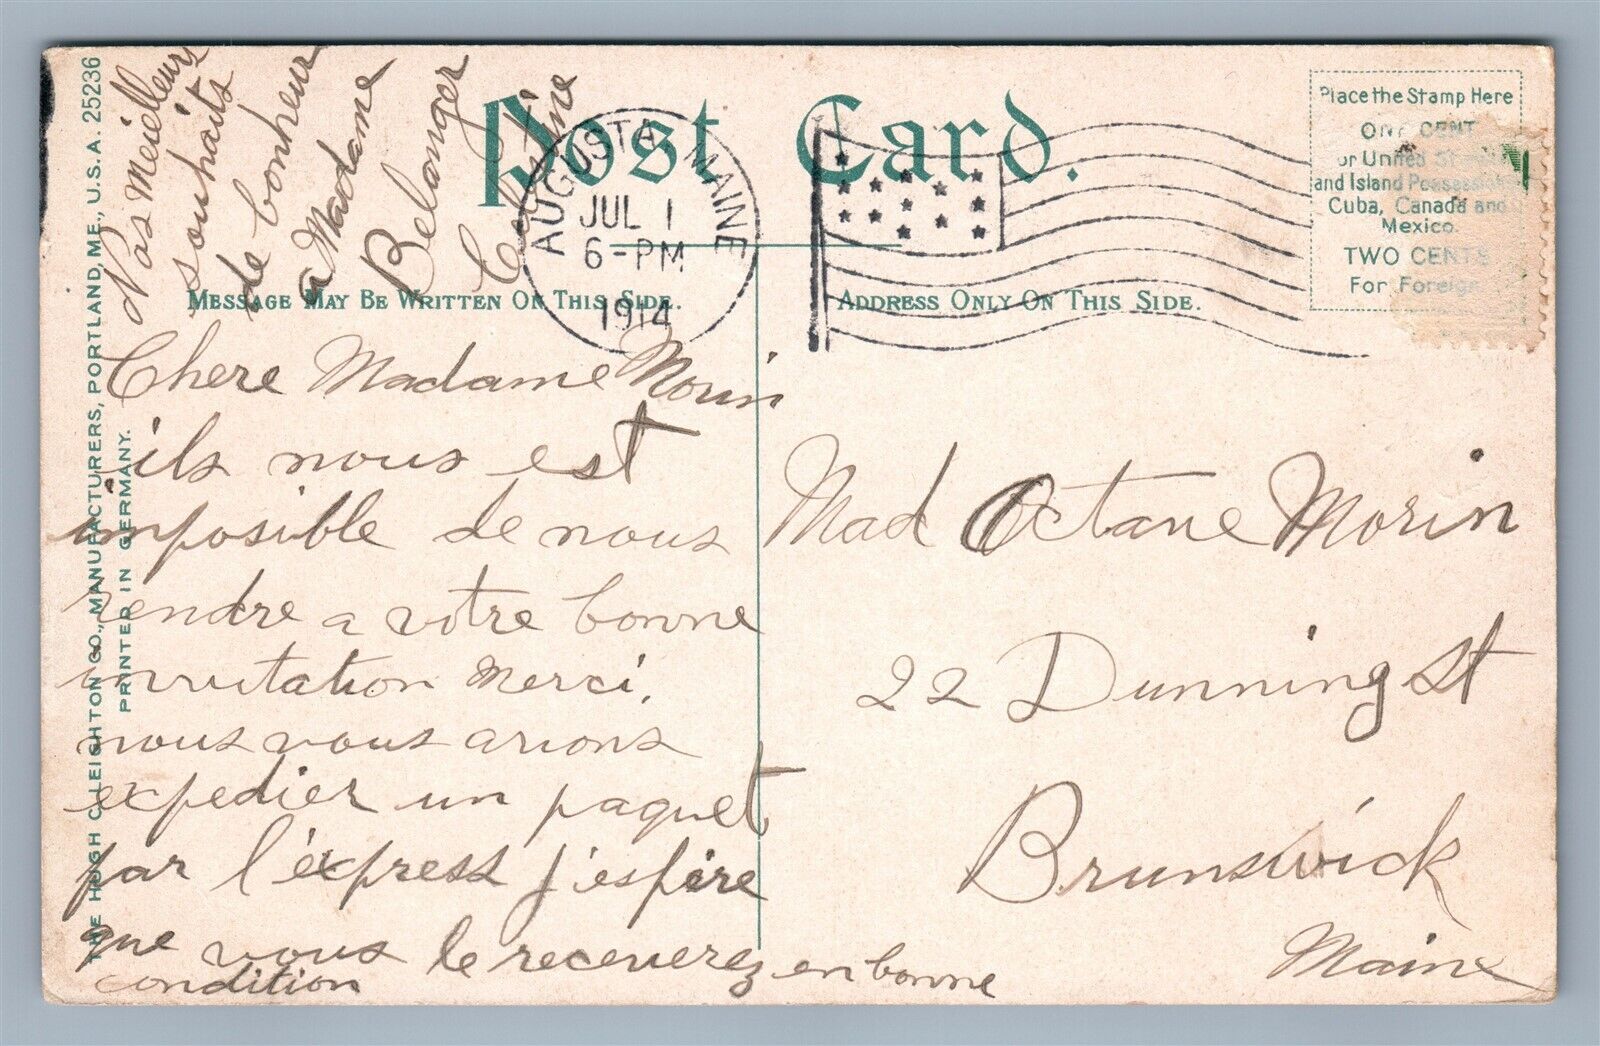 Nos Meilleurs
souhaits
de bonheur
a Madame
Belanger
Celestine
Post Card.
Place the Stamp Here
ONE CENT
or United States
and Island Possessions
Cuba, Canada and
Mexico.
TWO CENTS
For Foreign
AUGUSTA MAINE
JUL 1
6-PM
1914
MESSAGE MAY BE WRITTEN ON THIS SIDE.
ADDRESS ONLY ON THIS SIDE.
THE HUGH C. LEIGHTON CO., MANUFACTURERS, PORTLAND, ME., U.S.A. 25236
PRINTED IN GERMANY.
Chere Madame Morin
ils nous est
imposible de nous
rendre a votre bonne
invitation Merci.
nous vous avions
expedier un paquet
par l'express j'espère
que vous le receverez en bonne
condition
Mad Octane Morin
22 Dunning St
Brunswick
Maine